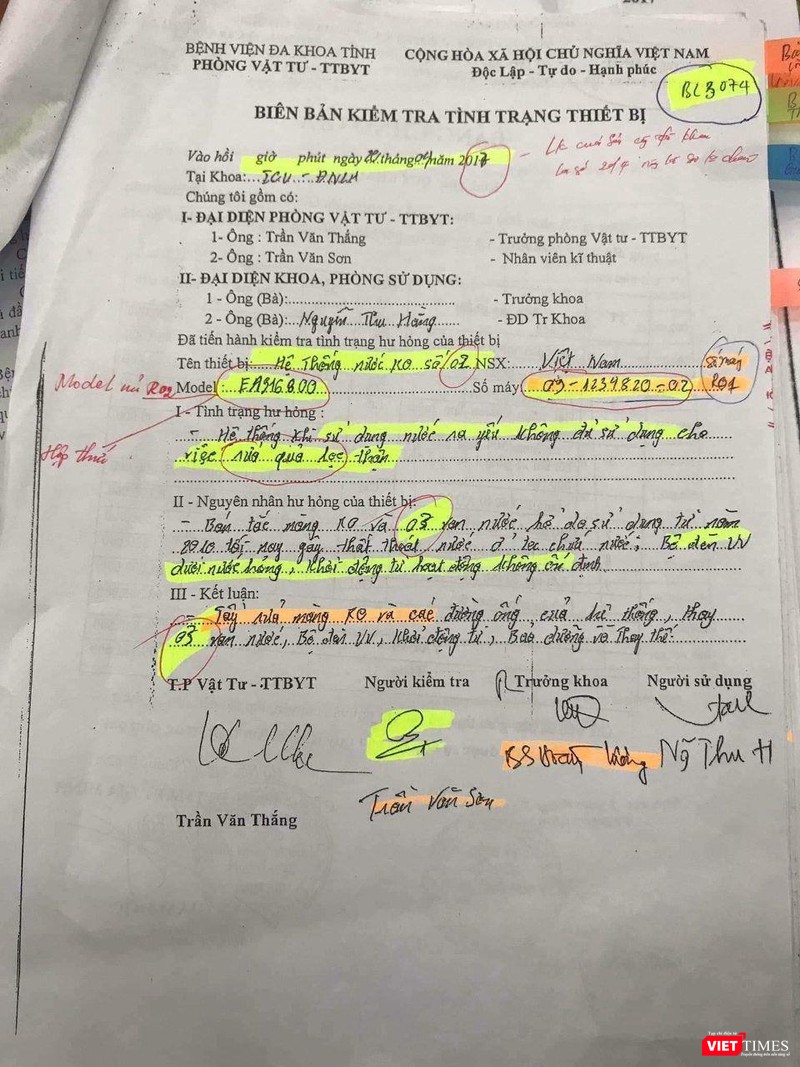 2017
BỆNH VIỆN ĐA KHOA TỈNH
PHÒNG VẬT TƯ - TTBYT
CỘNG HÒA XÃ HỘI CHỦ NGHĨA VIỆT NAM
Độc Lập - Tự do - Hạnh phúc
BL 3074
BIÊN BẢN KIỂM TRA TÌNH TRẠNG THIẾT BỊ
Vào hồi giờ phút ngày 20 tháng 04 năm 2017
Tại Khoa:... ICU - ĐNLM
Chúng tôi gồm có:
I- ĐẠI DIỆN PHÒNG VẬT TƯ - TTBYT:
1- Ông : Trần Văn Thắng - Trưởng phòng Vật tư - TTBYT
2- Ông : Trần Văn Sơn - Nhân viên kĩ thuật
II- ĐẠI DIỆN KHOA, PHÒNG SỬ DỤNG:
1 - Ông (Bà):............................................ - Trưởng khoa
2 - Ông (Bà): Nguyễn Thu Hằng - ĐD Tr Khoa
Đã tiến hành kiểm tra tình trạng hư hỏng của thiết bị
Tên thiết bị: Hệ Thống nước RO số 02 NSX: Việt Nam
Model RO2
Model: EA916800 Số máy: 09-1239820-02 RO1
I - Tình trạng hư hỏng :
- Hệ thống khi sử dụng nước ra yếu không đủ sử dụng cho
việc rửa quả lọc thận
II - Nguyên nhân hư hỏng của thiết bị:
- Bẩn tắc màng RO và 03 van nước hở do sử dụng từ năm
2010 tới nay gây thất thoát nước ở tec chứa nước; Bộ đèn UV
dưới nước hỏng, khởi động từ hoạt động không ổn định.
III - Kết luận:
- Tẩy rửa màng RO và các đường ống của hệ thống, thay
03 van nước, Bộ đèn UV, khởi động từ, Bảo dưỡng và Thay thế.
T.P Vật Tư -TTBYT Người kiểm tra Trưởng khoa Người sử dụng
Ng Thu H
Trần Văn Sơn
Trần Văn Thắng
Tạp chí điện tử
VIETTIMES